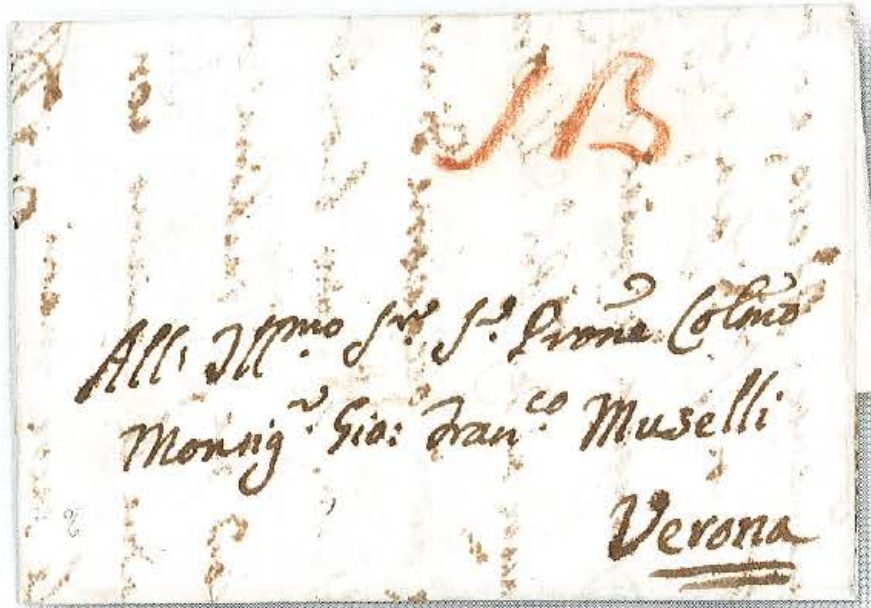 All' Ill.mo Sr. Sr. Prone Colmo
Monsig.r Gio: Fran.co Muselli
Verona